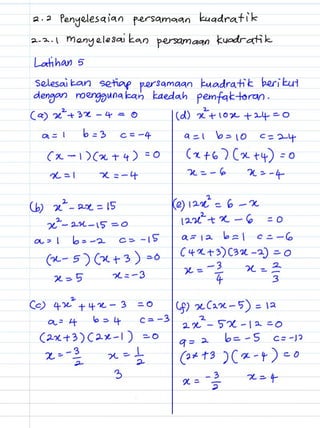 2.2 Penyelesaian persamaan kuadratik
2.2.1 menyelesaikan persamaan kuadratik
Latihan 5
Selesaikan setiap persamaan kuadratik berikut
dengan menggunakan kaedah pemfaktoran.
(a) x² + 3x - 4 = 0
a = 1 b = 3 c = -4
(x - 1)(x + 4) = 0
x = 1 x = -4
(b) x² - 2x = 15
x² - 2x - 15 = 0
a = 1 b = -2 c = -15
(x - 5)(x + 3) = 0
x = 5 x = -3
(c) 4x² + 4x - 3 = 0
a = 4 b = 4 c = -3
(2x + 3)(2x - 1) = 0
x = -3/2 x = 1/2
3
(d) x² + 10x + 24 = 0
a = 1 b = 10 c = 24
(x + 6)(x + 4) = 0
x = -6 x = -4
(e) 12x² = 6 - x
12x² + x - 6 = 0
a = 12 b = 1 c = -6
(4x + 3)(3x - 2) = 0
x = -3/4 x = 2/3
(f) x(2x - 5) = 12
2x² - 5x - 12 = 0
a = 2 b = -5 c = -12
(2x + 3)(x - 4) = 0
x = -3/2 x = 4